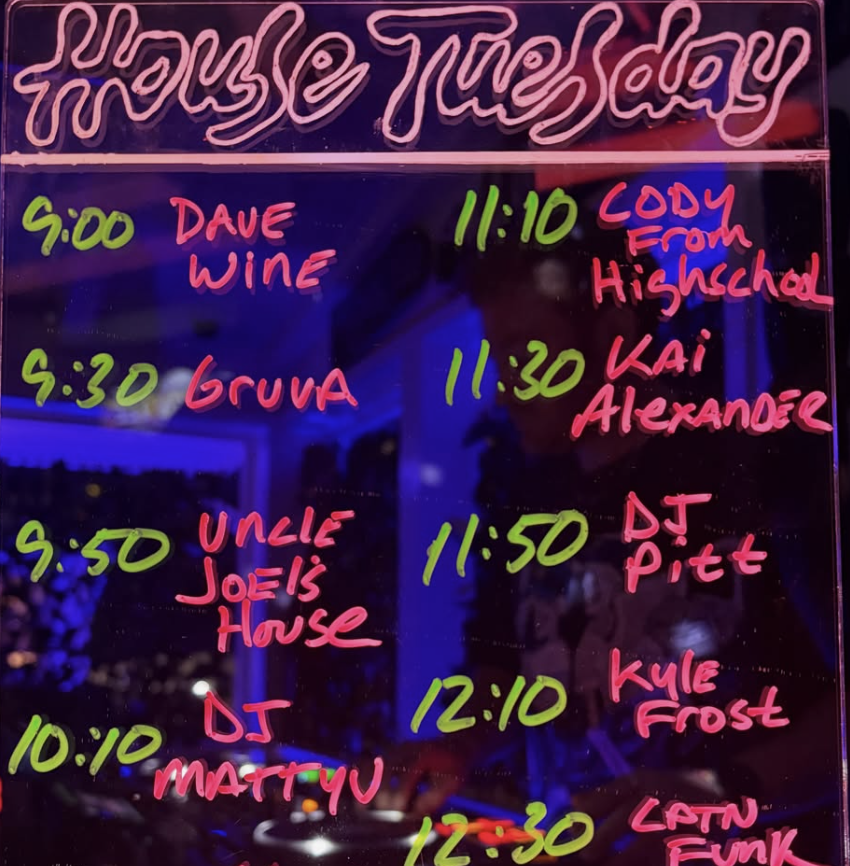 House Tuesday
9:00 DAVE
WinE
9:30 GruvA
9:50 UNCLE
JOEl's
House
10:10 DJ
MATTYU
11:10 CODY
From
Highschool
11:30 KAi
AlexANDER
11:50 DJ
Pitt
12:10 KylE
Frost
12:30 CAPTN
FunK